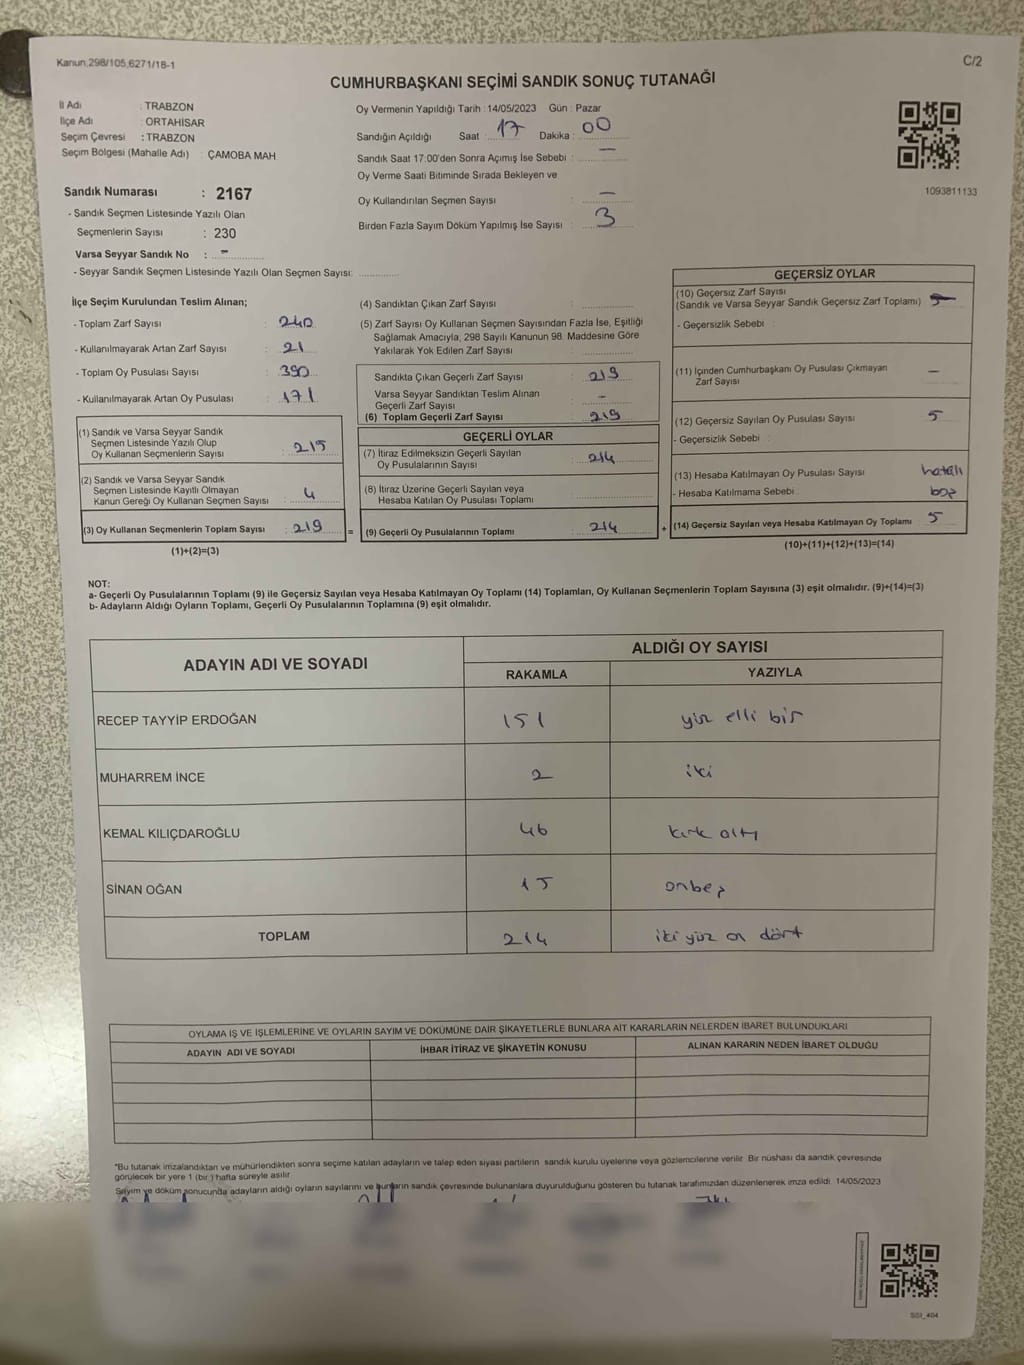 Kanun;298/105;6271/18-1
C/2
CUMHURBAŞKANI SEÇİMİ SANDIK SONUÇ TUTANAĞI
İl Adı : TRABZON
İlçe Adı : ORTAHİSAR
Seçim Çevresi : TRABZON
Seçim Bölgesi (Mahalle Adı) : ÇAMOBA MAH
Sandık Numarası : 2167
- Sandık Seçmen Listesinde Yazılı Olan
Seçmenlerin Sayısı : 230
Varsa Seyyar Sandık No : -
- Seyyar Sandık Seçmen Listesinde Yazılı Olan Seçmen Sayısı:
Oy Vermenin Yapıldığı Tarih : 14/05/2023 Gün : Pazar
Sandığın Açıldığı Saat : 17 Dakika : 00
Sandık Saat 17:00'den Sonra Açımış İse Sebebi : -
Oy Verme Saati Bitiminde Sırada Bekleyen ve
Oy Kullandırılan Seçmen Sayısı : -
Birden Fazla Sayım Döküm Yapılmış İse Sayısı : 3
1093811133
İlçe Seçim Kurulundan Teslim Alınan;
- Toplam Zarf Sayısı : 240
- Kullanılmayarak Artan Zarf Sayısı : 21
- Toplam Oy Pusulası Sayısı : 390
- Kullanılmayarak Artan Oy Pusulası : 171
(1) Sandık ve Varsa Seyyar Sandık
Seçmen Listesinde Yazılı Olup
Oy Kullanan Seçmenlerin Sayısı : 215
(2) Sandık ve Varsa Seyyar Sandık
Seçmen Listesinde Kayıtlı Olmayan
Kanun Gereği Oy Kullanan Seçmen Sayısı : 4
(3) Oy Kullanan Seçmenlerin Toplam Sayısı : 219 =
(1)+(2)=(3)
(4) Sandıktan Çıkan Zarf Sayısı :
(5) Zarf Sayısı Oy Kullanan Seçmen Sayısından Fazla İse, Eşitliği
Sağlamak Amacıyla, 298 Sayılı Kanunun 98. Maddesine Göre
Yakılarak Yok Edilen Zarf Sayısı :
Sandıkta Çıkan Geçerli Zarf Sayısı : 219
Varsa Seyyar Sandıktan Teslim Alınan
Geçerli Zarf Sayısı : -
(6) Toplam Geçerli Zarf Sayısı : 219
GEÇERLİ OYLAR
(7) İtiraz Edilmeksizin Geçerli Sayılan
Oy Pusulalarının Sayısı : 214
(8) İtiraz Üzerine Geçerli Sayılan veya
Hesaba Katılan Oy Pusulası Toplamı :
(9) Geçerli Oy Pusulalarının Toplamı : 214 +
GEÇERSİZ OYLAR
(10) Geçersiz Zarf Sayısı
(Sandık ve Varsa Seyyar Sandık Geçersiz Zarf Toplamı) :
- Geçersizlik Sebebi :
(11) İçinden Cumhurbaşkanı Oy Pusulası Çıkmayan
Zarf Sayısı : -
(12) Geçersiz Sayılan Oy Pusulası Sayısı : 5
- Geçersizlik Sebebi :
(13) Hesaba Katılmayan Oy Pusulası Sayısı : hatalı
- Hesaba Katılmama Sebebi : boş
(14) Geçersiz Sayılan veya Hesaba Katılmayan Oy Toplamı : 5
(10)+(11)+(12)+(13)=(14)
NOT:
a- Geçerli Oy Pusulalarının Toplamı (9) ile Geçersiz Sayılan veya Hesaba Katılmayan Oy Toplamı (14) Toplamları, Oy Kullanan Seçmenlerin Toplam Sayısına (3) eşit olmalıdır. (9)+(14)=(3)
b- Adayların Aldığı Oyların Toplamı, Geçerli Oy Pusulalarının Toplamına (9) eşit olmalıdır.
ADAYIN ADI VE SOYADI
ALDIĞI OY SAYISI
RAKAMLA YAZIYLA
RECEP TAYYİP ERDOĞAN 151 yüz elli bir
MUHARREM İNCE 2 iki
KEMAL KILIÇDAROĞLU 46 kırk altı
SİNAN OĞAN 15 onbeş
TOPLAM 214 iki yüz on dört
OYLAMA İŞ VE İŞLEMLERİNE VE OYLARIN SAYIM VE DÖKÜMÜNE DAİR ŞİKAYETLERLE BUNLARA AİT KARARLARIN NELERDEN İBARET BULUNDUKLARI
ADAYIN ADI VE SOYADI İHBAR İTİRAZ VE ŞİKAYETİN KONUSU ALINAN KARARIN NEDEN İBARET OLDUĞU
*Bu tutanak imzalandıktan ve mühürlendikten sonra seçime katılan adayların ve talep eden siyasi partilerin sandık kurulu üyelerine veya gözlemcilerine verilir. Bir nüshası da sandık çevresinde
görülecek bir yere 1 (bir ) hafta süreyle asılır.
Sayım ve döküm sonucunda adayların aldığı oyların sayılarını ve bunların sandık çevresinde bulunanlara duyurulduğunu gösteren bu tutanak tarafımızdan düzenlenerek imza edildi. 14/05/2023
SS1_404